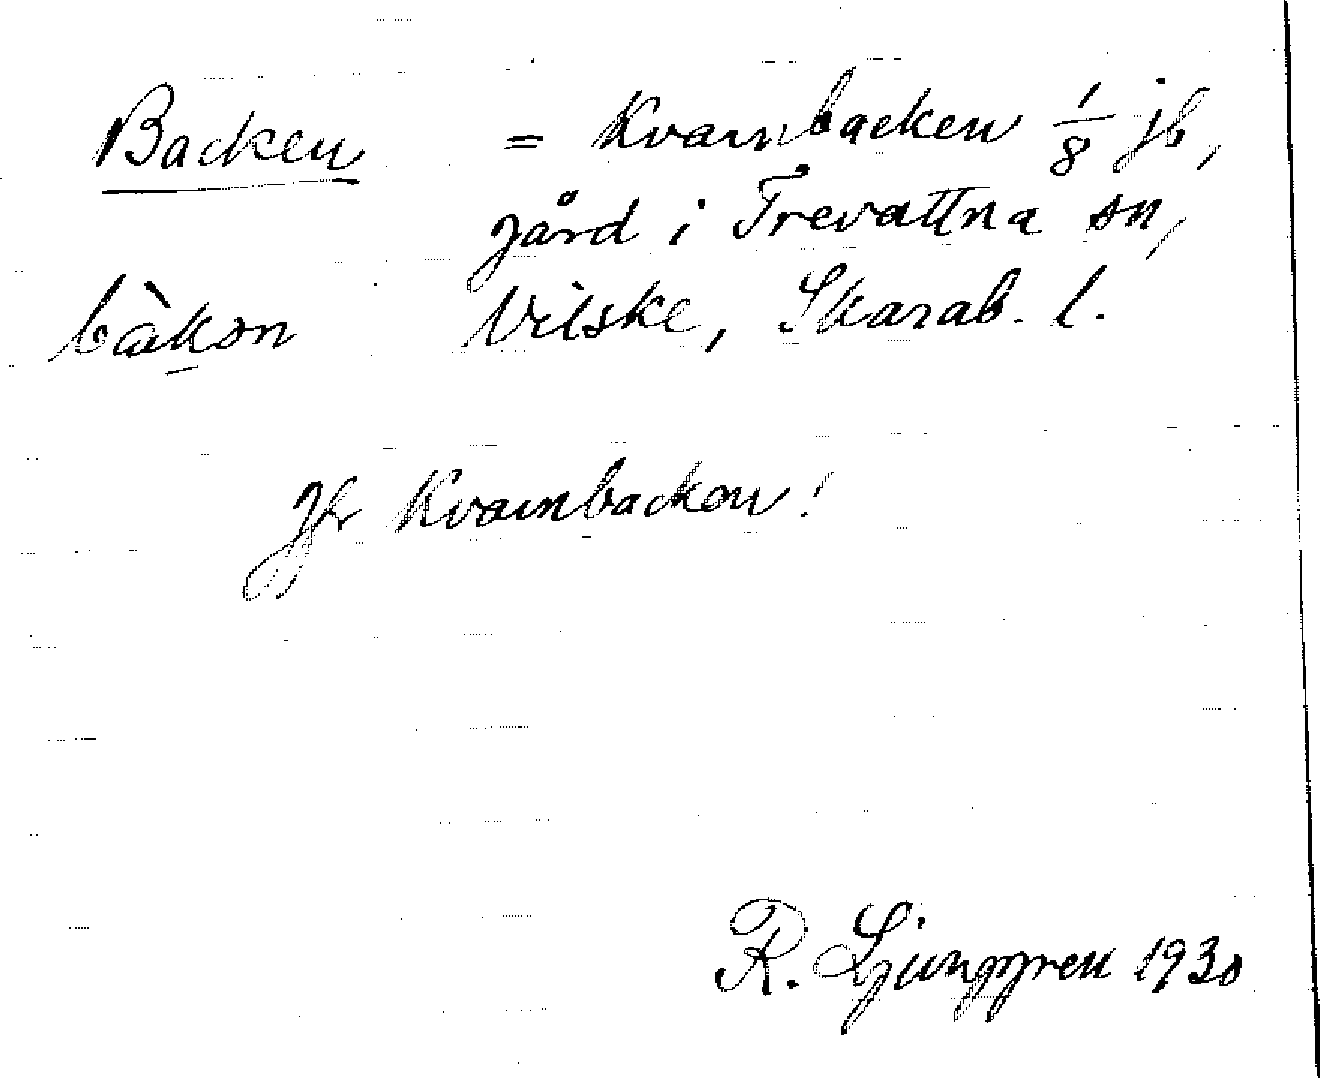 Backen = Kvarnbacken 1/8 jb,
gård i Trevattna sn,
bàkən Vilske, Skarab. l.
Jfr Kvarnbacken!
R. Ljunggren 1930